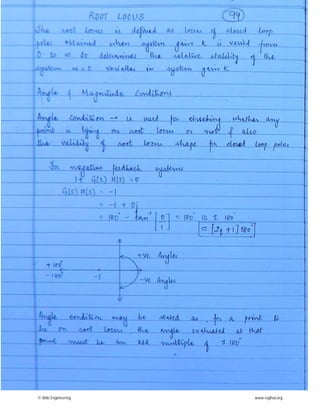 ROOT LOCUS
99
The root locus is defined as locus of closed loop
poles obtained when system gain K is varied from
0 to ∞. It determines the relative stability of the
system w.r.t variation in system gain K
Angle & Magnitude Conditions
Angle Condition → is used for checking whether any
point is lying on root locus or not & also
the validity of root locus shape for closed loop poles
For negative feedback systems
1+ G(s) H(s) = 0
G(s) H(s) = -1
= -1 + 0j
= 180° - tan⁻¹ [0/1] = 180° to ± 180°
= [2q + 1] 180°
+ve Angles
+180°
-180°
-1
-ve Angles
Angle condition may be stated as, for a point to
lie on root locus, the angle evaluated at that
point must be an odd multiple of ± 180°
www.raghul.org